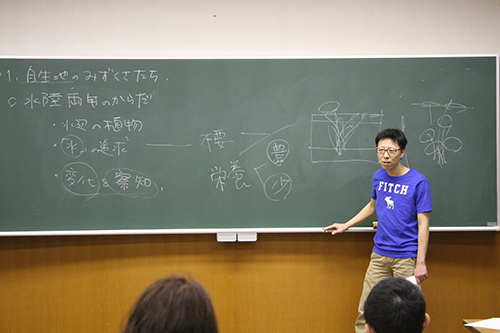 1. 自生地のみずくさたち.
○水陸両用のからだ
・水辺の植物
・水の追求
・変化を察知.
根
栄養
豊
少
FITCH